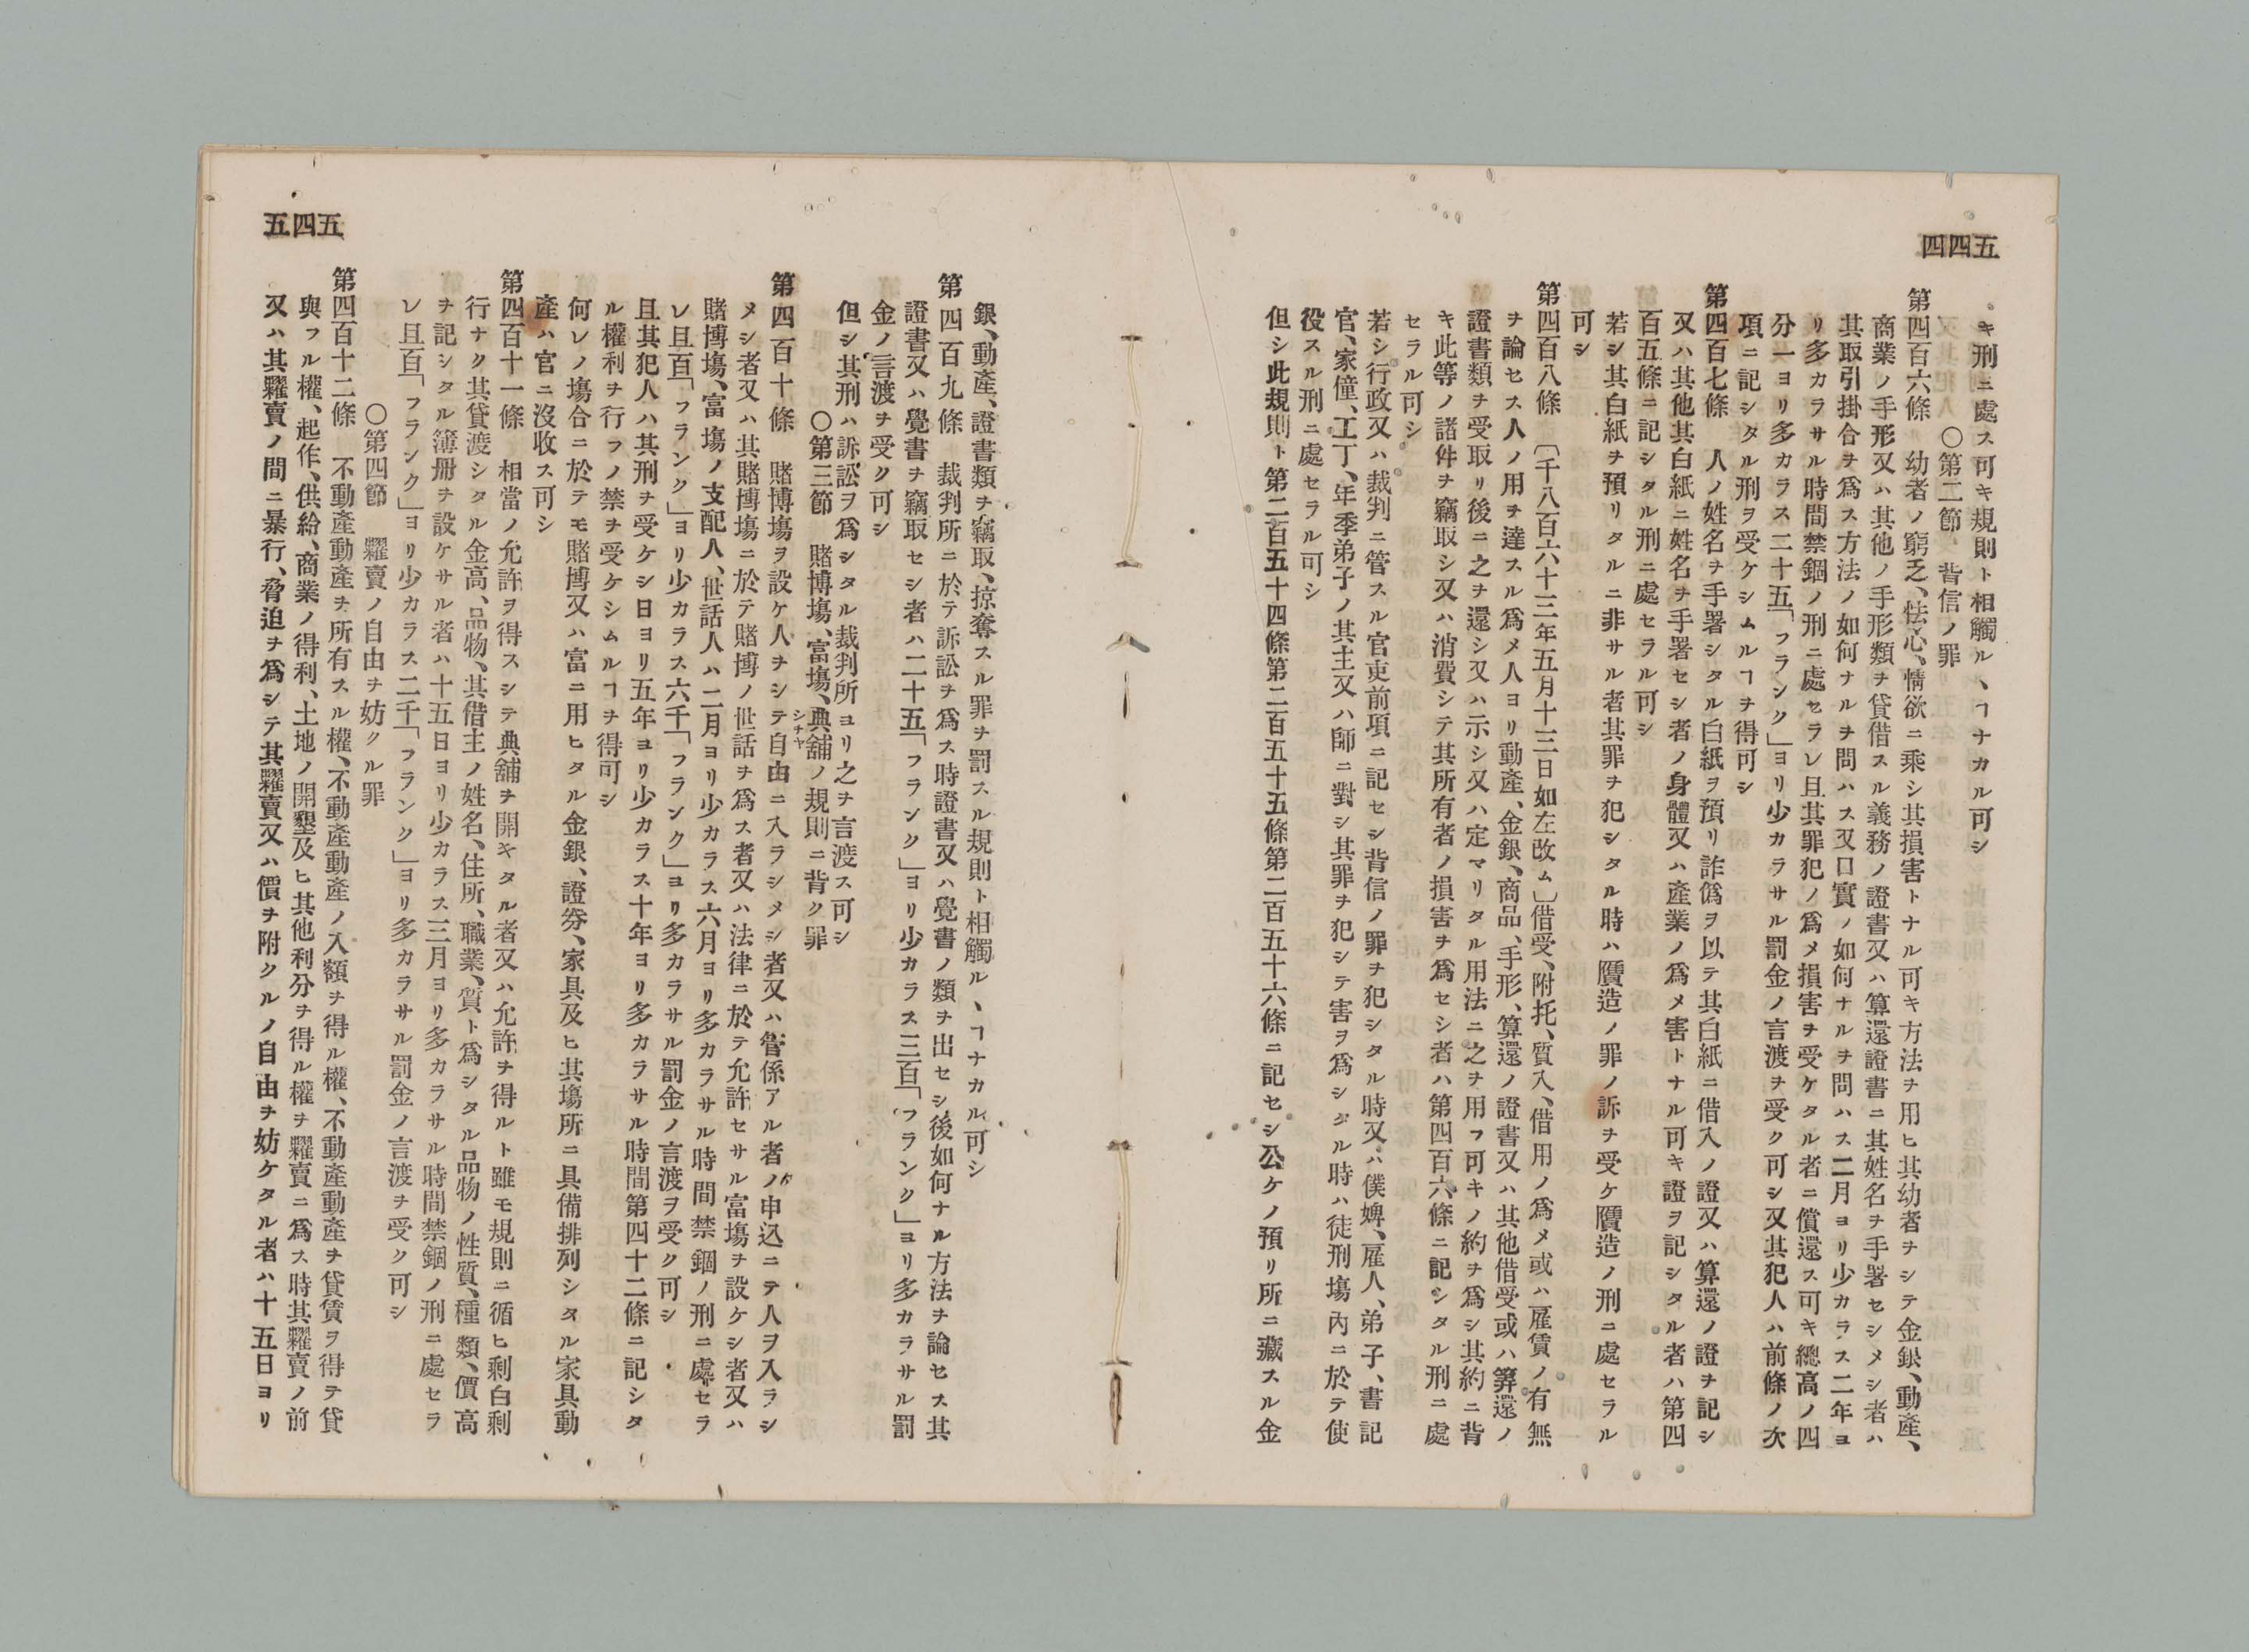 五四四
キ刑ニ處ス可キ規則ト相觸ル、ヿナカル可シ
〇第二節 背信ノ罪
第四百六條 幼者ノ窮乏、怯心、情欲ニ乘シ其損害トナル可キ方法ヲ用ヒ其幼者ヲシテ金銀、動產、
商業ノ手形又ハ其他ノ手形類ヲ貸借スル義務ノ證書又ハ算還證書ニ其姓名ヲ手署セシメシ者ハ
其取引掛合ヲ爲ス方法ノ如何ナルヲ問ハス又口實ノ如何ナルヲ問ハス二月ヨリ少カラス二年ヨ
リ多カラサル時間禁錮ノ刑ニ處セラレ且其罪犯ノ爲メ損害ヲ受ケタル者ニ償還ス可キ總高ノ四
分一ヨリ多カラス二十五「フランク」ヨリ少カラサル罰金ノ言渡ヲ受ク可シ又其犯人ハ前條ノ次
項ニ記シタル刑ヲ受ケシムルヿヲ得可シ
第四百七條 人ノ姓名ヲ手署シタル白紙ヲ預リ詐僞ヲ以テ其白紙ニ借入ノ證又ハ算還ノ證ヲ記シ
又ハ其他其白紙ニ姓名ヲ手署セシ者ノ身體又ハ產業ノ爲メ害トナル可キ證ヲ記シタル者ハ第四
百五條ニ記シタル刑ニ處セラル可シ
若シ其白紙ヲ預リタルニ非サル者其罪ヲ犯シタル時ハ贋造ノ罪ノ訴ヲ受ケ贋造ノ刑ニ處セラル
可シ
第四百八條 〔千八百六十三年五月十三日如左改ム〕借受、附托、質入、借用ノ爲メ或ハ雇賃ノ有無
ヲ論セス人ノ用ヲ達スル爲メ人ヨリ動產、金銀、商品、手形、算還ノ證書又ハ其他借受或ハ算還ノ
證書類ヲ受取リ後ニ之ヲ還シ又ハ示シ又ハ定マリタル用法ニ之ヲ用フ可キノ約ヲ爲シ其約ニ背
キ此等ノ諸件ヲ竊取シ又ハ消費シテ其所有者ノ損害ヲ爲セシ者ハ第四百六條ニ記シタル刑ニ處
セラル可シ
若シ行政又ハ裁判ニ管スル官吏前項ニ記セシ背信ノ罪ヲ犯シタル時又ハ僕婢、雇人、弟子、書記
官、家僮、工丁、年季弟子ノ其主又ハ師ニ對シ其罪ヲ犯シテ害ヲ爲シタル時ハ徒刑塲內ニ於テ使
役スル刑ニ處セラル可シ
但シ此規則ト第二百五十四條第二百五十五條第二百五十六條ニ記セシ公ケノ預リ所ニ藏スル金
銀、動產、證書類ヲ竊取、掠奪スル罪ヲ罰スル規則ト相觸ル、ヿナカル可シ
第四百九條 裁判所ニ於テ訴訟ヲ爲ス時證書又ハ覺書ノ類ヲ出セシ後如何ナル方法ヲ論セス其
證書又ハ覺書ヲ竊取セシ者ハ二十五「フランク」ヨリ少カラス三百「フランク」ヨリ多カラサル罰
金ノ言渡ヲ受ク可シ
但シ其刑ハ訴訟ヲ爲シタル裁判所ヨリ之ヲ言渡ス可シ
〇第三節 賭博塲、富塲、典舖ノ規則ニ背ク罪
シチヤ
第四百十條 賭博塲ヲ設ケ人ヲシテ自由ニ入ラシメシ者又ハ管係アル者ノ申込ニテ人ヲ入ラシ
メシ者又ハ其賭博塲ニ於テ賭博ノ世話ヲ爲ス者又ハ法律ニ於テ允許セサル富塲ヲ設ケシ者又ハ
賭博塲、富塲ノ支配人、世話人ハ二月ヨリ少カラス六月ヨリ多カラサル時間禁錮ノ刑ニ處セラ
レ且百「フランク」ヨリ少カラス六千「フランク」ヨリ多カラサル罰金ノ言渡ヲ受ク可シ
且其犯人ハ其刑ヲ受ケシ日ヨリ五年ヨリ少カラス十年ヨリ多カラサル時間第四十二條ニ記シタ
ル權利ヲ行フノ禁ヲ受ケシムルヿヲ得可シ
何レノ塲合ニ於テモ賭博又ハ富ニ用ヒタル金銀、證劵、家具及ヒ其塲所ニ具備排列シタル家具動
產ハ官ニ沒收ス可シ
第四百十一條 相當ノ允許ヲ得スシテ典舖ヲ開キタル者又ハ允許ヲ得ルト雖モ規則ニ循ヒ剩白剩
行ナク其貸渡シタル金高、品物、其借主ノ姓名、住所、職業、質ト爲シタル品物ノ性質、種類、價高
ヲ記シタル簿册ヲ設ケサル者ハ十五日ヨリ少カラス三月ヨリ多カラサル時間禁錮ノ刑ニ處セラ
レ且百「フランク」ヨリ少カラス二千「フランク」ヨリ多カラサル罰金ノ言渡ヲ受ク可シ
〇第四節 糶賣ノ自由ヲ妨クル罪
第四百十二條 不動產動產ヲ所有スル權、不動產動產ノ入額ヲ得ル權、不動產動產ヲ貸賃ヲ得テ貸
與フル權、起作、供給、商業ノ得利、土地ノ開墾及ヒ其他利分ヲ得ル權ヲ糶賣ニ爲ス時其糶賣ノ前
又ハ其糶賣ノ間ニ暴行、脅迫ヲ爲シテ其糶賣又ハ價ヲ附クルノ自由ヲ妨ケタル者ハ十五日ヨリ
五四五